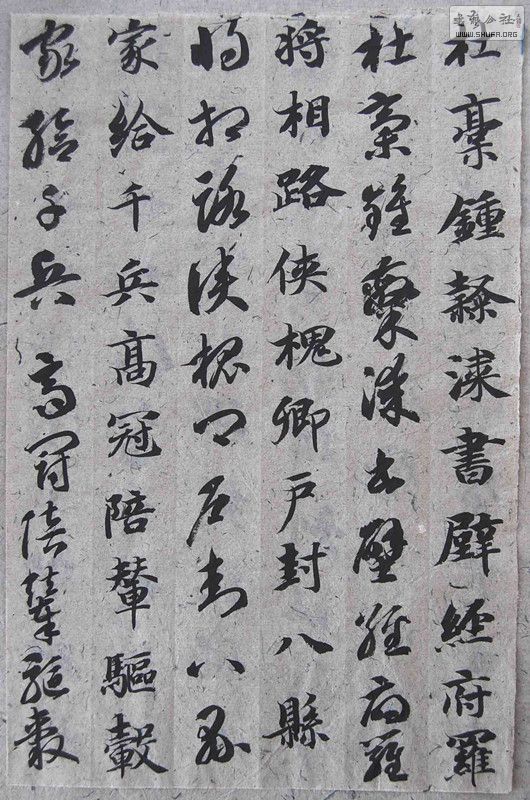 杜槀鍾隸漆書壁經府羅
杜槀鍾隸漆書壁經府羅
將相路俠槐卿戶封八縣
將相路俠槐卿戶封八縣
家給千兵高冠陪輦驅轂
家給千兵高冠陪輦驅轂
WWW.SHUFA.ORG